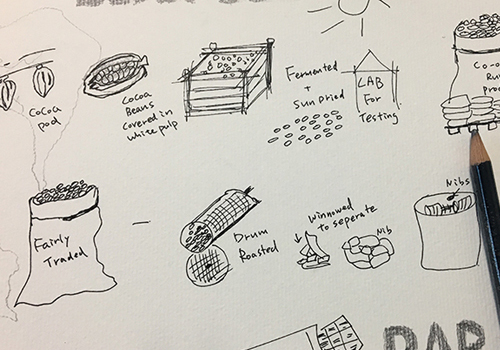 Cocoa
pod
Cocoa
Beans
covered in
white pulp
Fermented
+
Sun Dried
LAB
For
Testing
Fairly
Traded
Drum
Roasted
Winnowed
to seperate
Nib
Nibs